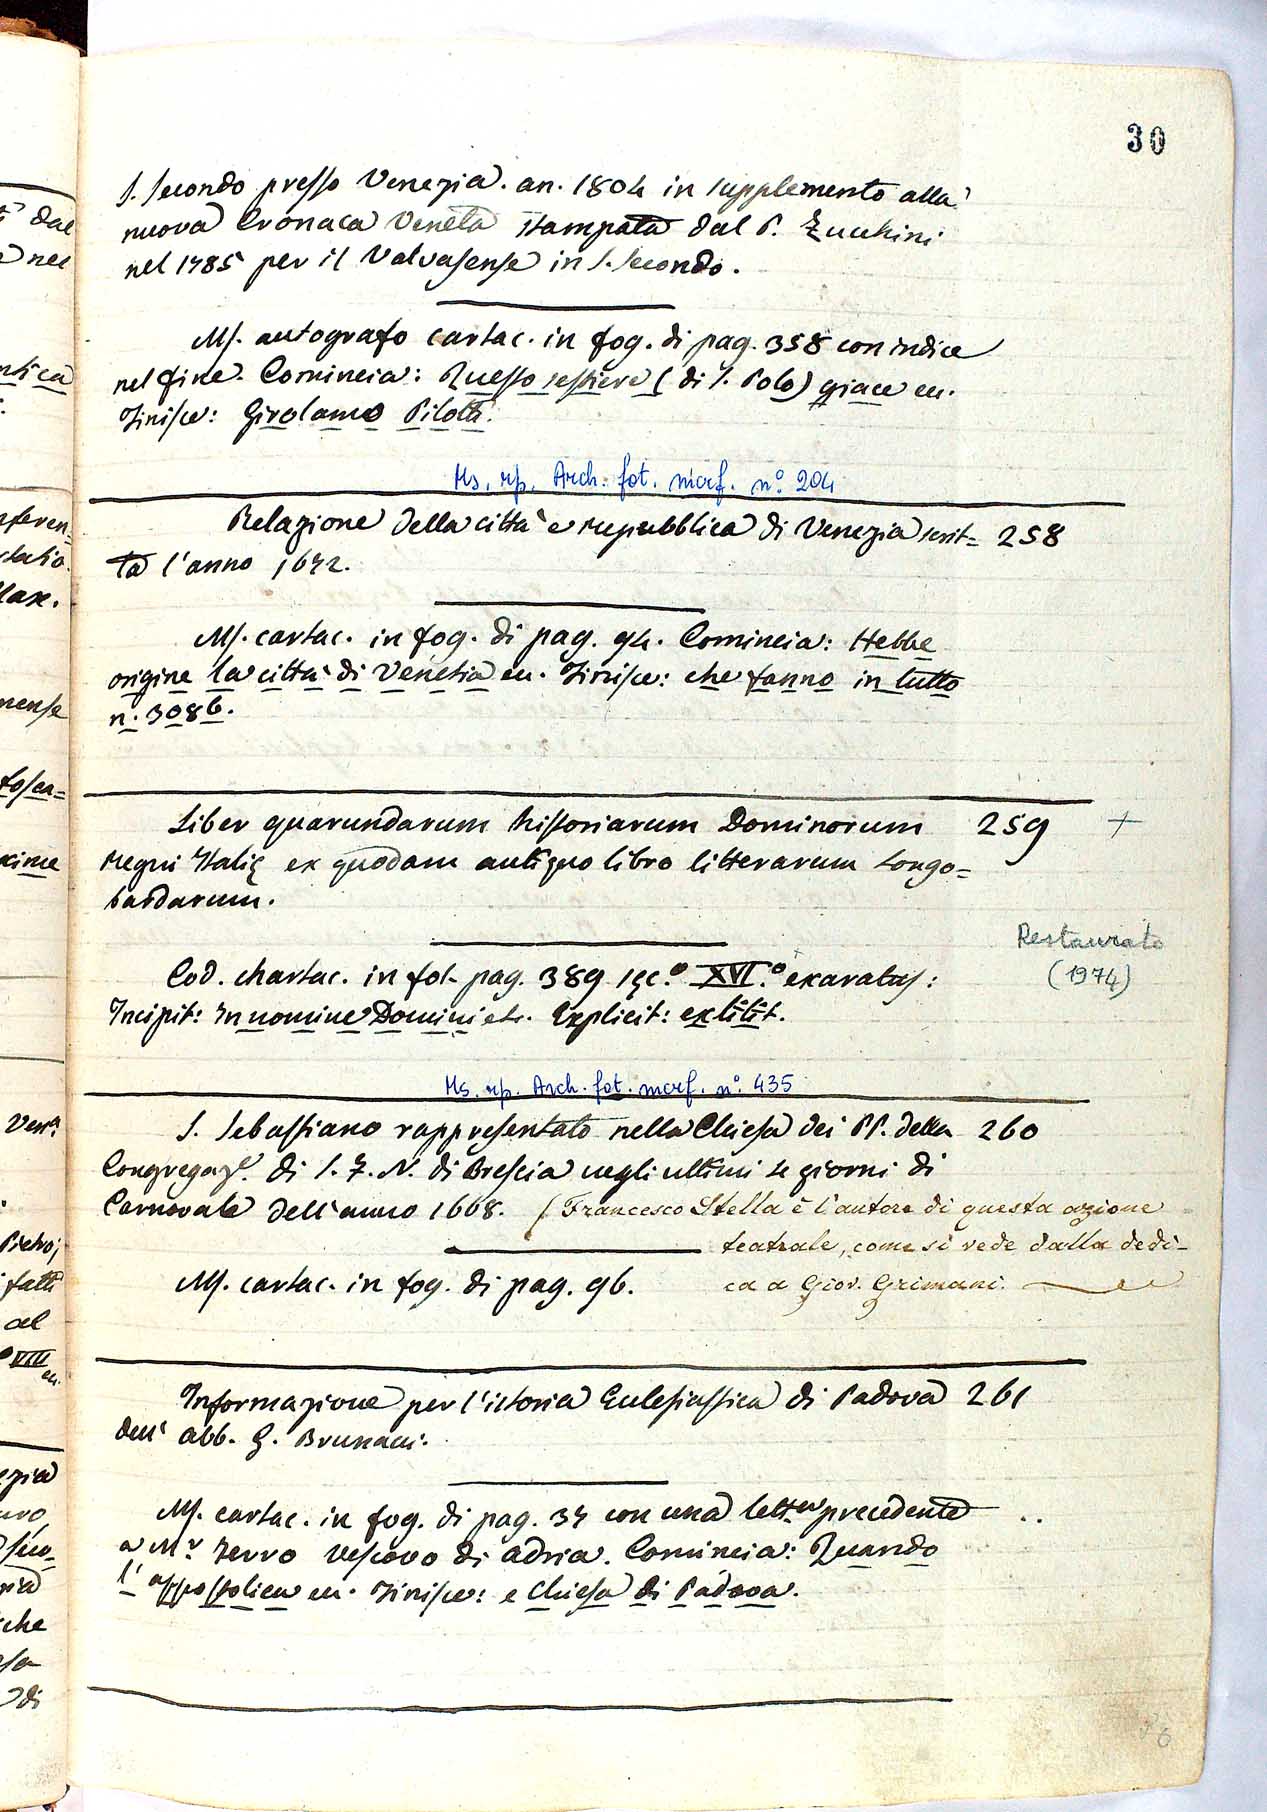 30
S. Secondo presso Venezia. an. 1804 in supplemento alla
nuova Cronaca Veneta stampata dal P. Zucchini
nel 1785 per il Valvasense in S. Secondo.
Ms. autografo cartac. in fog. di pag. 358 con indice
nel fine. Comincia: Questo sestiere (di S. Polo) giace ec.
Finisce: Girolamo Pilotti.
Ms. rip. Arch. fot. microf. n.° 204
Relazione della città e repubblica di Venezia scrit= 258
ta l'anno 1672.
Ms. cartac. in fog. di pag. 94. Comincia: Hebbe
origine la città di Venetia ec. Finisce: che fanno in tutto
n. 3086.
Liber quarundarum historiarum Dominorum 259 +
regni Italię ex quodam antiquo libro litterarum Longo=
bardarum.
Restaurato
(1974)
Cod. chartac. in fol. pag. 389 sęc.° XVI.° exaratus:
Incipit: In nomine Domini etc. Explicit: extitit.
Ms. rip. Arch. fot. mcrf. n.° 435
S. Sebastiano rappresentato nella Chiesa dei PP. della 260
Congregaz.e di S. F. N. di Brescia negli ultimi 4 giorni di
Carnovale dell'anno 1668. (Francesco Stella è l'autore di questa azione
teatrale, come si vede dalla dedi-
ca a Giov. Grimani.
Ms. cartac. in fog. di pag. 96.
Informazione per l'istoria Eclesiastica di Padova 261
dell' abb. G. Brunacci.
Ms. cartac. in fog. di pag. 34 con una lettera precedente
a Mr Ferro Vescovo di Adria. Comincia: Quando
l'appostolica ec. Finisce: e Chiesa di Padova.